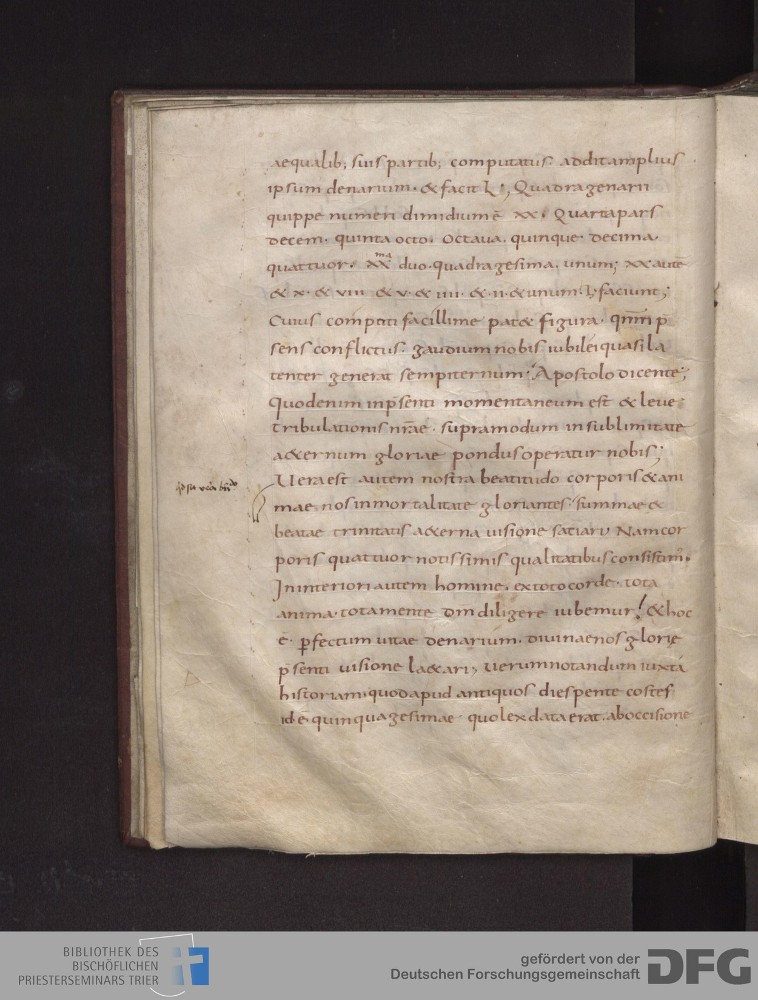 aequalib; suis partib; computatus. addit amplius
ipsum denarium. & facit L; Quadragenarii
quippe numeri dimidium ē xx. Quarta pars
decem. quinta octo. Octaua. quinque. decima.
quattuor. xx ma duo. quadragesima. unum; xx autē
& x. & viii & v. & iiii. & ii. & unum L faciunt;
Cuius computi facillime pat& figura. p̄
sens conflictus. gaudium nobis iubilei quasi la
tenter generat sempiternum; Apostolo dicente;
Quod enim in p̄senti momentaneum est & leue
tribulationis nr̄ae. supra modum in sublimitate
a&ernum gloriae pondus operatur nobis;
Uera est autem nostra beatitudo corporis & ani
mae nos inmortalitate gloriantes summae &
beatae trinitatis a&erna uisione satiari Nam cor
poris quattuor notissimis qualitatibus consistim;
In interiori autem homine. ex toto corde. tota
anima. tota mente dm̄ diligere iubemur! & hoc
ē. p̄fectum uitae denarium. diuinae nos glorię
p̄senti uisione la&ari; uerum notandum iuxta
historiam. quod apud antiquos dies pentecostes
id ē. quinquagesimae quo lex data erat. ab occisione
BIBLIOTHEK DES
BISCHÖFLICHEN
PRIESTERSEMINARS TRIER
gefördert von der
Deutschen Forschungsgemeinschaft
DFG